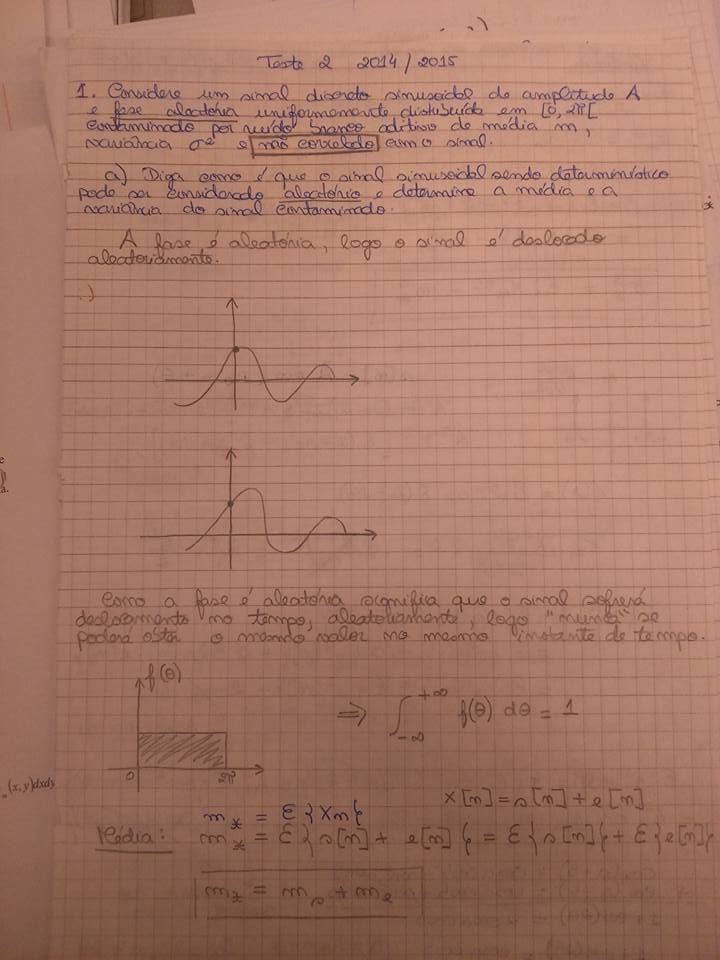 Teste 2 2014/2015
1. Considere um sinal discreto sinusoidal de amplitude A
e fase aleatória uniformemente distribuída em [0, 2π[
contaminado por ruído branco aditivo de média m,
variância σ² e não correlado com o sinal.
a) Diga como é que o sinal sinusoidal sendo determinístico
pode ser considerado aleatório e determine a média e a
variância do sinal contaminado.
A fase é aleatória, logo o sinal é deslocado
aleatoriamente.
Como a fase é aleatória significa que o sinal sofrerá
deslocamento no tempo, aleatoriamente, logo "nunca" se
poderá obter o mesmo valor no mesmo instante de tempo.
f(θ)
⇒ ∫_{-∞}^{+∞} f(θ) dθ = 1
0 2π
(x,y)dxdy
x[n] = s[n] + e[n]
m_x = E{Xn}
Média: m_x = E{s[n] + e[n]} = E{s[n]} + E{e[n]}
m_x = m_s + m_e